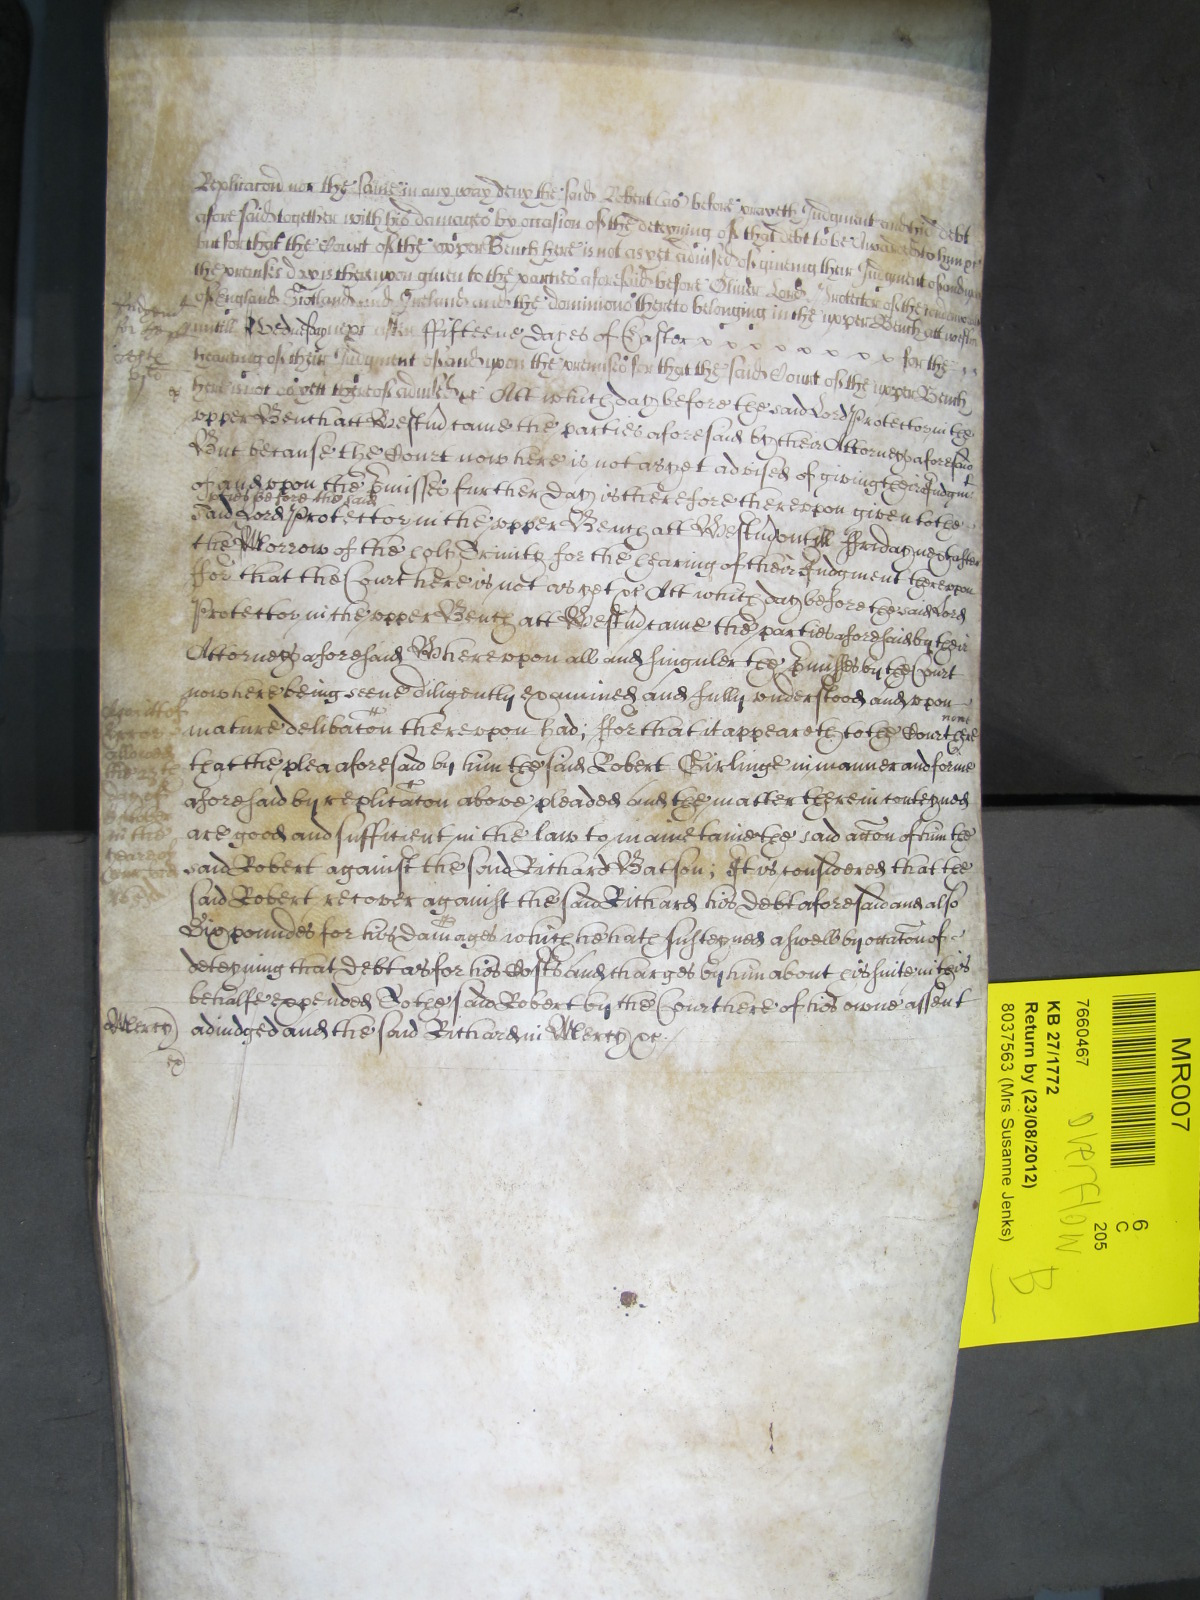 Replicacon nor the same in any way deny the said Robert (as) before prayeth Judgment and his debt
aforesaid together with his damages by occasion of the deteyning of that debt to be Awarded to him &c
but for that the Court of the upper Bench here is not as yet advised of giveing their Judgment of and upon
the premises day is thereupon given to the parties aforesaid before Oliver Lord Protector of the
of England Scotland and Ireland and the dominions thereto belonging in the upper Bench att
untill Wednesday next after ffifteene dayes of Easter x x x x x x x x for the
heareing of their Judgment of and upon the premises for that the said Court of the upper Bench
here is not as yett thereof advised &c Att which day before the said Lord Protector in the
upper Bench att Westm̄ came the parties aforesaid by their Attorneys aforesaid
But because the Court now here is not as yet advised of giving their Judgmt
of and upon the p̄misses further day is therefore thereupon given to the
p̄ties before the said
said Lord Protector in the upper Bench att Westm̄ untill ffriday next after
the Morrow of the holy Trinity for the hearing of their Judgment thereupon
ffor that the Court here is not as yet &c Att which day before the said Lord
Protector in the upper Bench att Westm̄ came the parties aforesaid by their
Attorneys aforesaid Whereupon all and singuler the p̄misses by the Court
now here being seene diligently examined and fully understood and upon
mature delibac̄on thereupon had; ffor that it appeareth to the Court here
nowe
that the plea aforesaid by him the said Robert Girlinge in manner and forme
aforesaid by replicac̄on above pleaded and the matter therein conteyned
are good and sufficient in the law to mainetaine the said acc̄on of him the
said Robert against the said Richard Batson; It is considered that the
said Robert recover against the said Richard his debt aforesaid and also
Six poundes for his damages which he hath susteyned aswell by occac̄on of
deteyning that debt as for his Costs and charges by him about his suite in this
behalfe expended To the said Robert by the Court here of his owne assent
Mercy adiudged and the said Richard in Mercy &c.
A writt of
Error
allowed
the
day of
October
in the
yeare of
MR007
6
C
205
7660467
KB 27/1772
Return by (23/08/2012)
8037563 (Mrs Susanne Jenks)
overflow
B